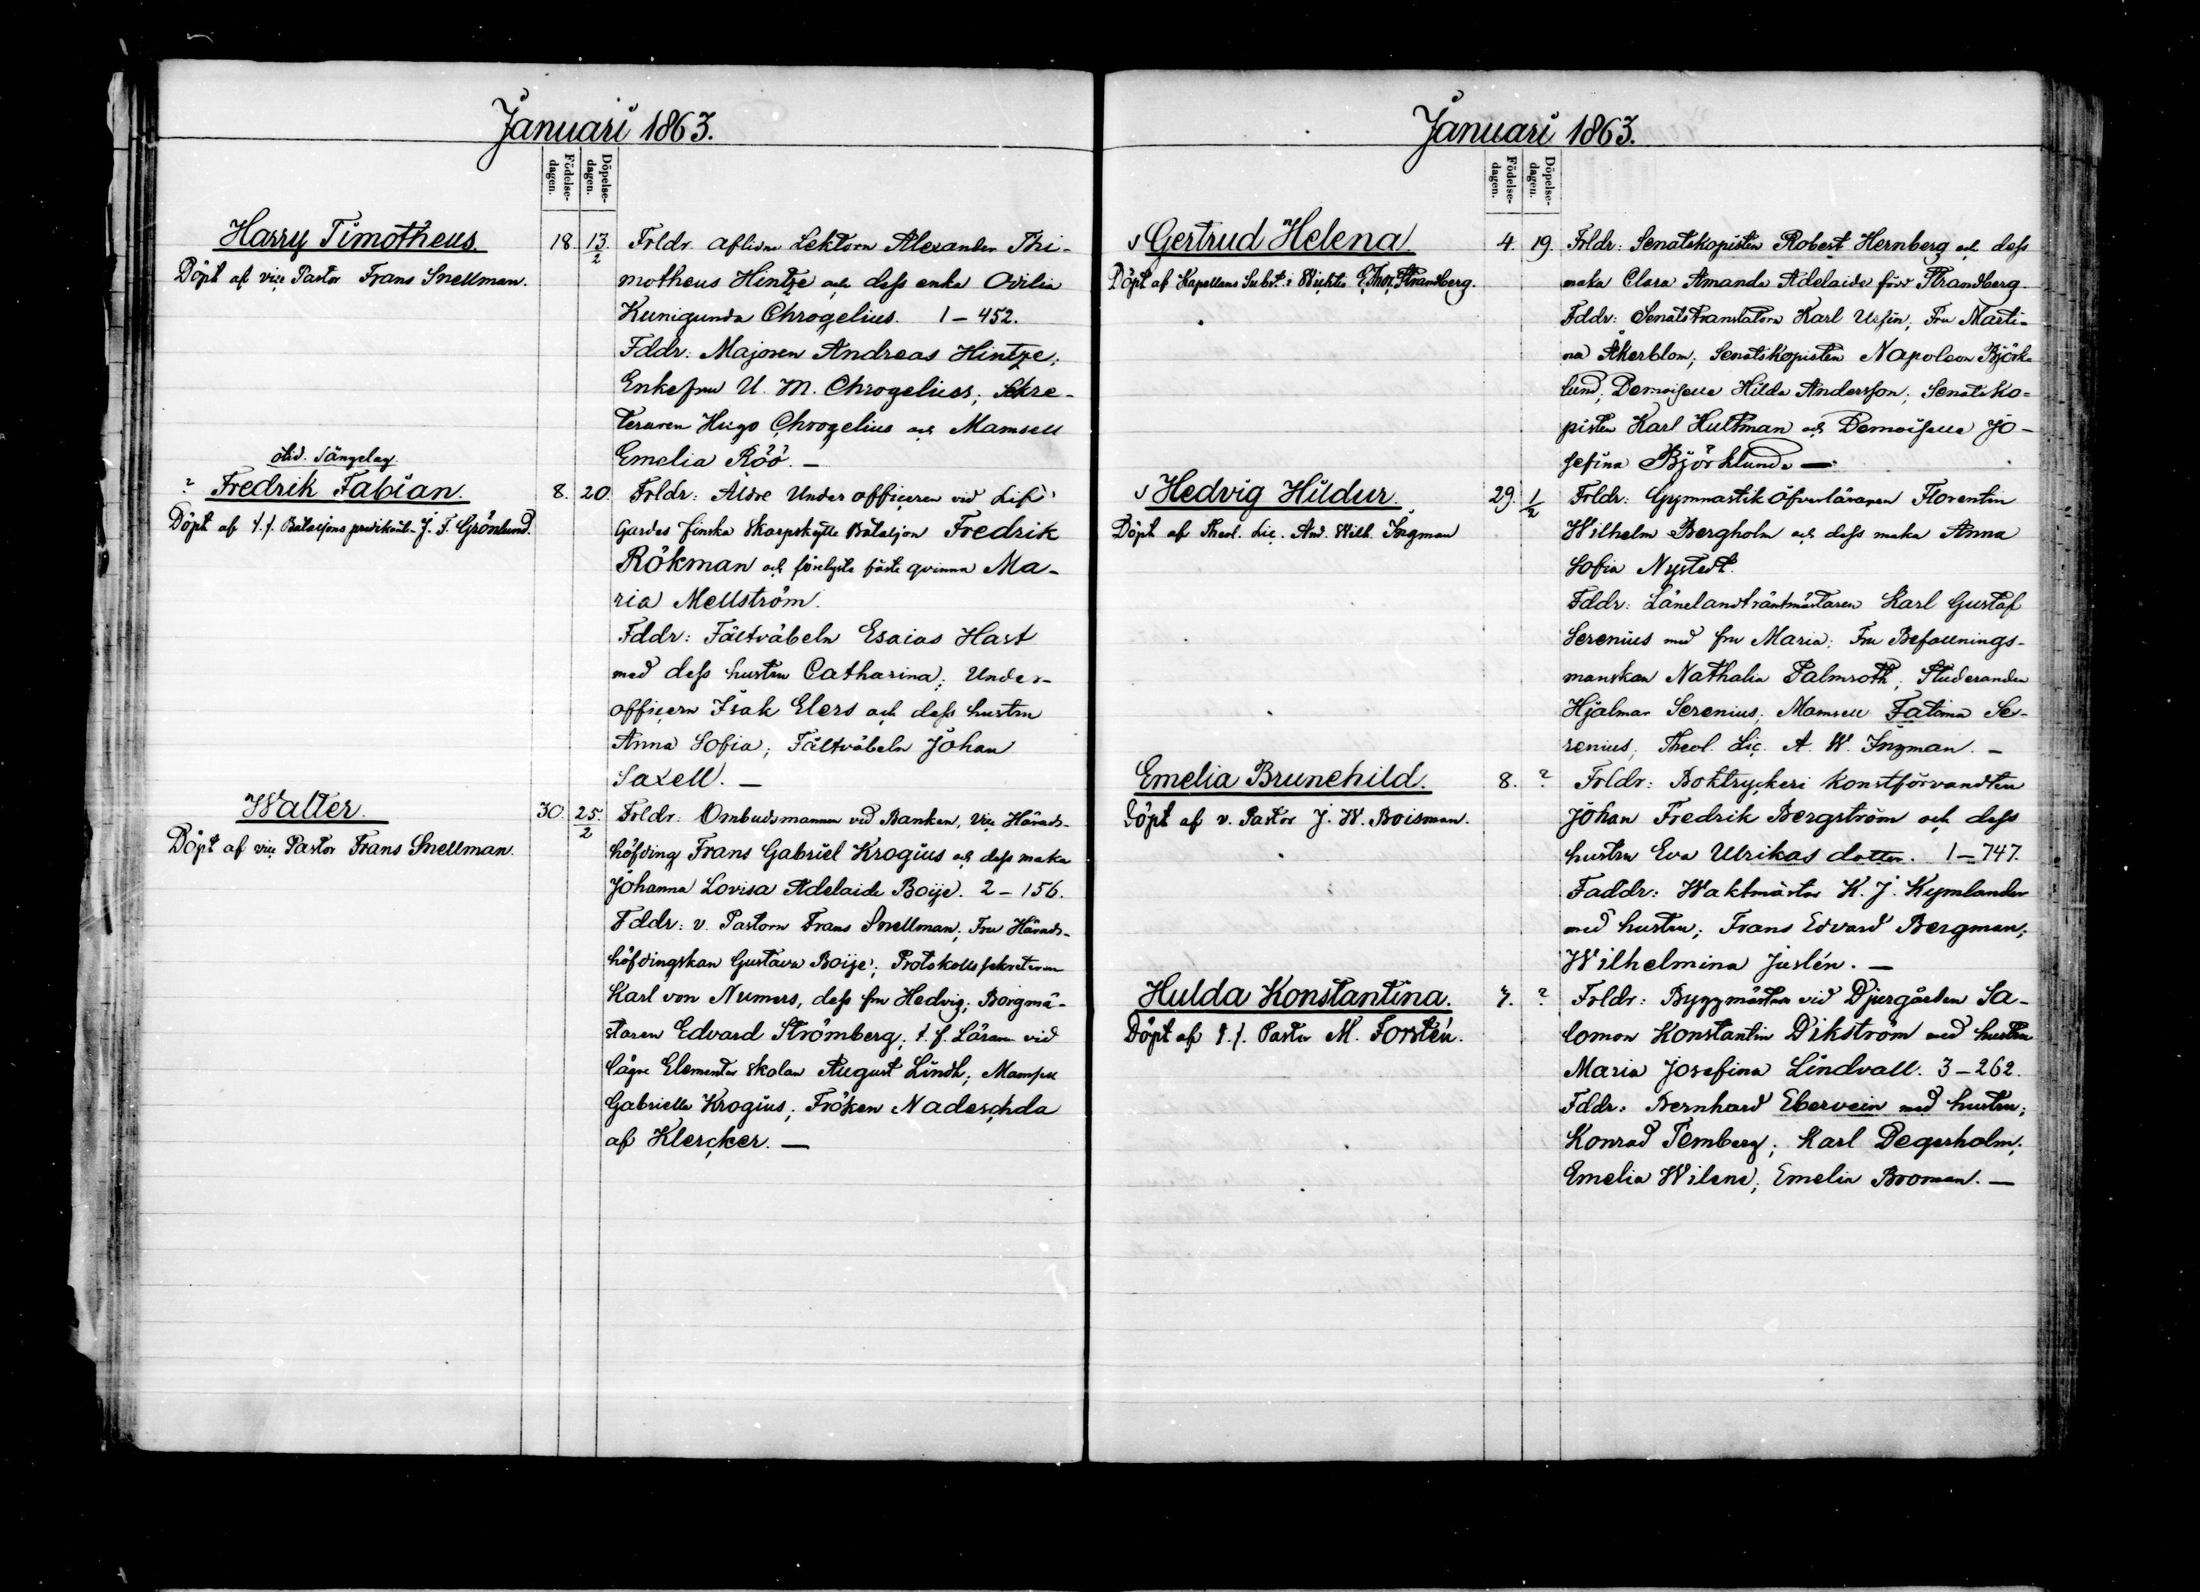 Januari 1863.
Födelse-
dagen.
Döpelse-
dagen.
Harry Timotheus.
Döpt af vice Pastor Frans Snellman.
18. 13/2
Frldr aflidne Lektorn Alexander Thi-
motheus Hintze och dess enka Ovilia
Kunigunda Chrogelius. 1 - 452.
Fddr: Majoren Andreas Hintze;
Enkefru U. M. Chrogelius; Sekre-
teraren Hugo Chrogelius och Mamsell
Emelia Röö. —
oäkt. Sängelag
? Fredrik Fabian.
Döpt af t.f. Bataljons predikanten J. F. Grönlund.
8. 20.
Frldr: Äldre Underofficeren vid Lif-
Gardes finska Skarpskytte Bataljon Fredrik
Rökman och förelysta fästeqvinna Ma-
ria Mellström.
Fddr: Fältväbeln Esaias Hast
med dess hustru Catharina; Under-
officern Isak Elers och dess hustru
Anna Sofia; Fältväbeln Johan
Saxell. —
Walter.
Döpt af vice Pastor Frans Snellman.
30. 25/2
Frldr: Ombudsmannen vid Banken, Vice Härads-
höfding Frans Gabriel Krogius och dess maka
Johanna Lovisa Adelaide Boije. 2 - 156.
Fddr: v. Pastorn Frans Snellman; Fru Härads-
höfdingskan Gustava Boije; Protokollssekreteraren
Karl von Numers, dess fru Hedvig; Borgmä-
staren Edvard Strömberg; t. f. Läraren vid
lägre Elementar skolan August Lindh; Mamsell
Gabriella Krogius; Fröken Nadeschda
af Klercker. —
Januari 1863.
Födelse-
dagen.
Döpelse-
dagen.
Gertrud Helena
Döpt af Kapellans Subst. i Wichtis E. Thor. Strandberg.
4. 19.
Frldr: Senatskopisten Robert Hernberg och dess
maka Clara Amanda Adelaide född Strandberg.
Fddr: Senatstranslatorn Karl Ursin; Fru Marti-
na Åkerblom; Senatskopisten Napoleon Björk-
lund; Demoiselle Hilda Andersson; Senatsko-
pisten Karl Hultman och Demoiselle Jo-
sefina Björklund —
Hedvig Hildur.
Döpt af Theol. Lic. And. Wilh. Ingman
29. 1/2
Frldr: Gymnastik Öfverläraren Florentin
Wilhelm Bergholm och dess maka Anna
Sofia Nystedt.
Fddr: Länelandträntmästaren Karl Gustaf
Serenius med fru Maria; Fru Befallnings-
manskan Nathalia Palmroth; Studeranden
Hjalmar Serenius; Mamsell Fatima Se-
renius; Theol. Lic. A. W. Ingman. —
Emelia Brunehild.
Döpt af v. Pastor J. W. Boisman.
8. ?
Frldr: Boktryckeri konstförvandten
Johan Fredrik Bergström och dess
hustru Eva Ulrikas dotter. 1 - 747.
Faddr: Waktmästar K. J. Kymlander
med hustru; Frans Edvard Bergman;
Wilhelmina Juslén. —
Hulda Konstantina.
Döpt af t.f. Pastor M. Forstén.
7. ?
Frldr: Byggmästare vid Djurgården Sa-
lomon Konstantin Dikström med hustru
Maria Josefina Lindvall. 3 - 262.
Fddr: Bernhard Ebervein med hustru;
Konrad Temberg; Karl Degerholm;
Emelia Wilene; Emelia Broman. —